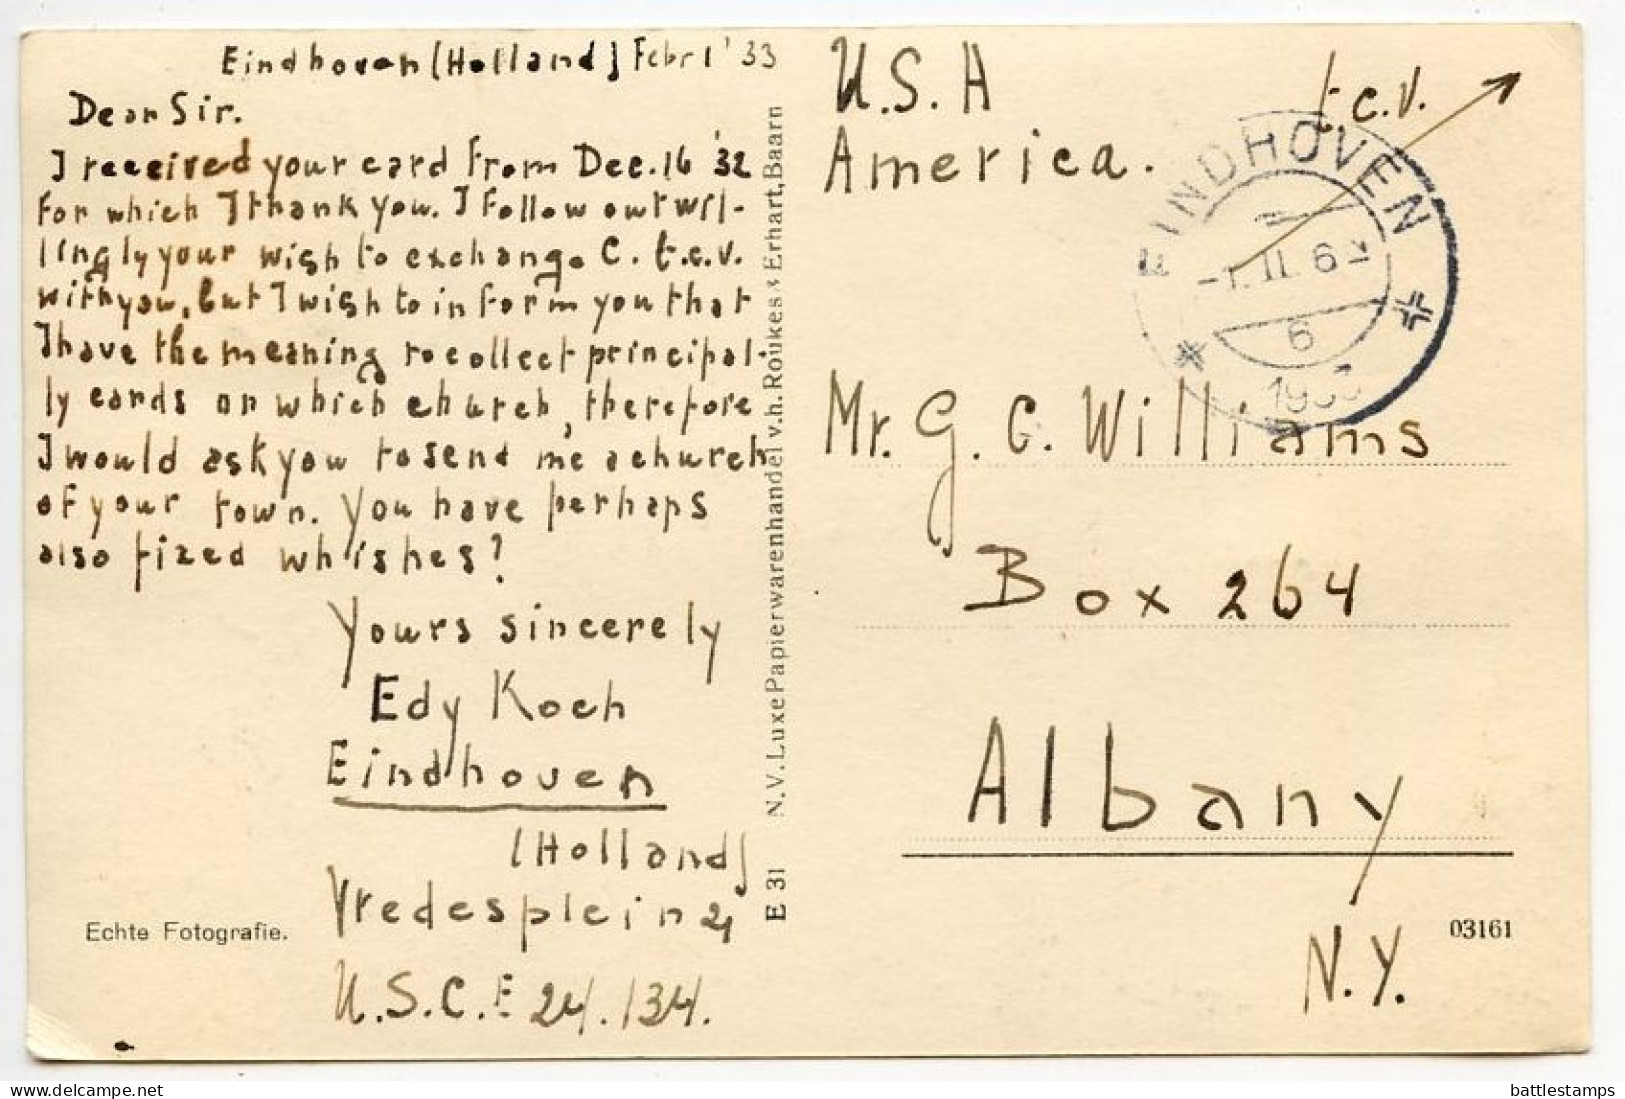 Eindhoven (Holland) Febr 1 '33
Dear Sir.
I received your card from Dec. 16 '32
for which I thank you. I follow out wil-
lingly your wish to exchange C. t.c.v.
with you, but I wish to inform you that
I have the meaning to collect principal-
ly cards on which church, therefore
I would ask you to send me a church
of your town. You have perhaps
also fixed whishes?
Yours sincerely
Edy Koch
Eindhoven
(Holland)
Vredesplein 24
U.S.C.E 24.134.
Echte Fotografie.
E 31 N.V. Luxe Papierwarenhandel v.h. Roukes & Erhart, Baarn
U.S.A
America.
t.c.v.
EINDHOVEN
-1. II. 6
6
1933
Mr. G. C. Williams
Box 264
Albany
N.Y.
03161
https://www.delcampe.net
battlestamps